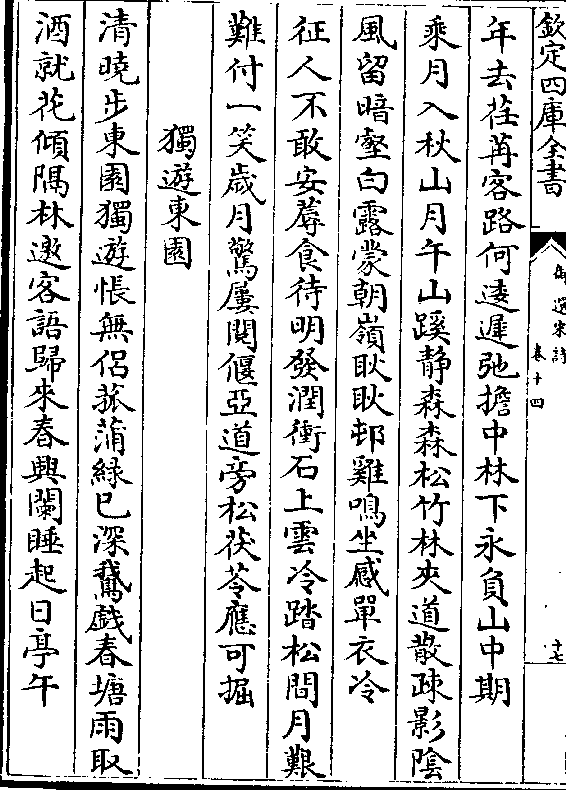 欽定四庫全書
御選宋詩
卷十四
十七
年去荏苒客路何逶遲弛擔中林下永負山中期
乘月入秋山月午山蹊静森森松竹林夾道散疎影陰
風留暗壑白露蒙朝嶺耿耿邨雞鳴坐感單衣冷
征人不敢安蓐食待明發澗衝石上雲冷踏松間月艱
難付一笑歲月驚屢閱偃亞道旁松茯苓應可掘
獨遊東園
清曉步東園獨遊悵無侣菰蒲緑已深鵞戲春塘雨取
酒就花傾隔林邀客語歸來春興闌睡起日亭午